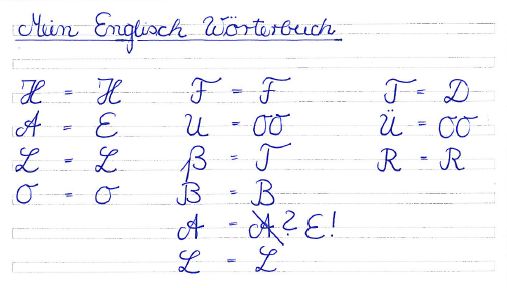 Mein Englisch Wörterbuch
H = H F = F T = D
A = E U = OO Ü = OO
L = L ß = T R = R
O = O B = B
A = A? E!
L = L